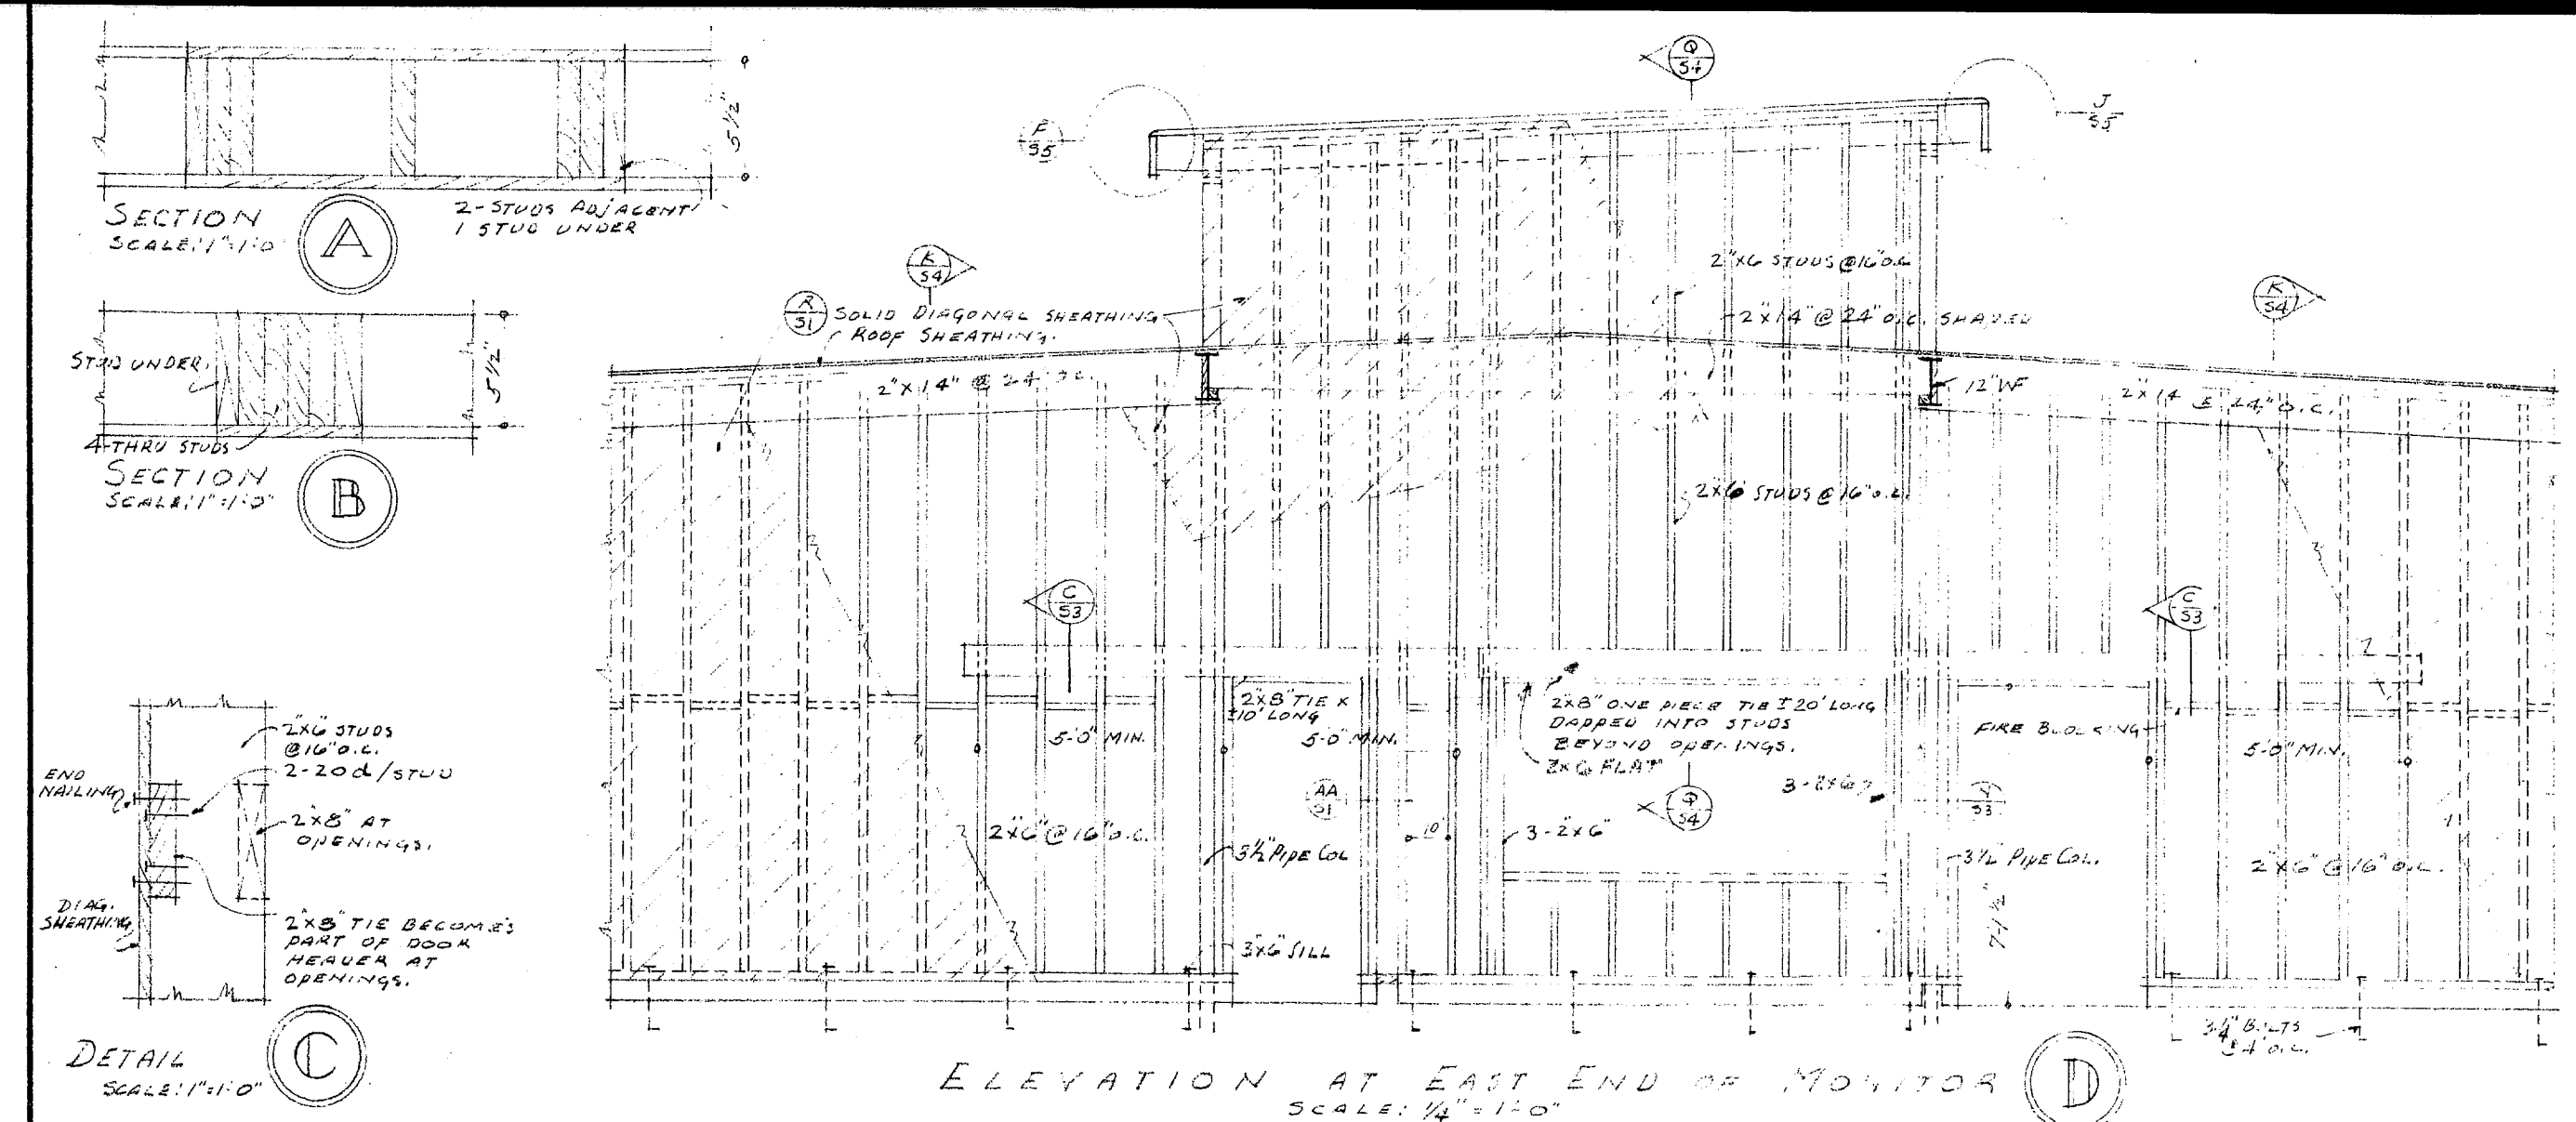 5 1/2"
SECTION
SCALE: 1"=1'-0"
A
2-STUDS ADJACENT
1 STUD UNDER
STUD UNDER
5 1/2"
4-THRU STUDS
SECTION
SCALE: 1"=1'-0"
B
2"x6" STUDS
@16" O.C.
2-20d/STUD
END
NAILING
2"x8" AT
OPENINGS.
DIAG.
SHEATHING
2"x8" TIE BECOMES
PART OF DOOR
HEADER AT
OPENINGS.
DETAIL
SCALE: 1"=1'-0"
C
Q
S4
F
S5
J
S5
K
S4
K
S4
R
S1
SOLID DIAGONAL SHEATHING
ROOF SHEATHING.
2"x6 STUDS @16"O.C.
2"x14"@24"O.C. SHAPED
2"x14"@24"O.C.
12"WF
2"x14"@24"O.C.
2"x6" STUDS @16"O.C.
C
S3
C
S3
2"x8" TIE x
±10' LONG
5'-0" MIN.
5'-0" MIN.
2x8" ONE PIECE TIE ±20' LONG
DAPPED INTO STUDS
BEYOND OPENINGS.
2x6 FLAT
FIRE BLOCKING
5'-0" MIN.
3-2x6
AA
S1
S4
S3
2"x6"@16"O.C.
3½" PIPE COL
10"
3-2x6"
3½" PIPE COL.
2"x6"@16"O.C.
7'-1½"
3x6" SILL
3/4" BOLTS
@4' O.C.
ELEVATION AT EAST END OF MONITOR
SCALE: ¼"=1'-0"
D